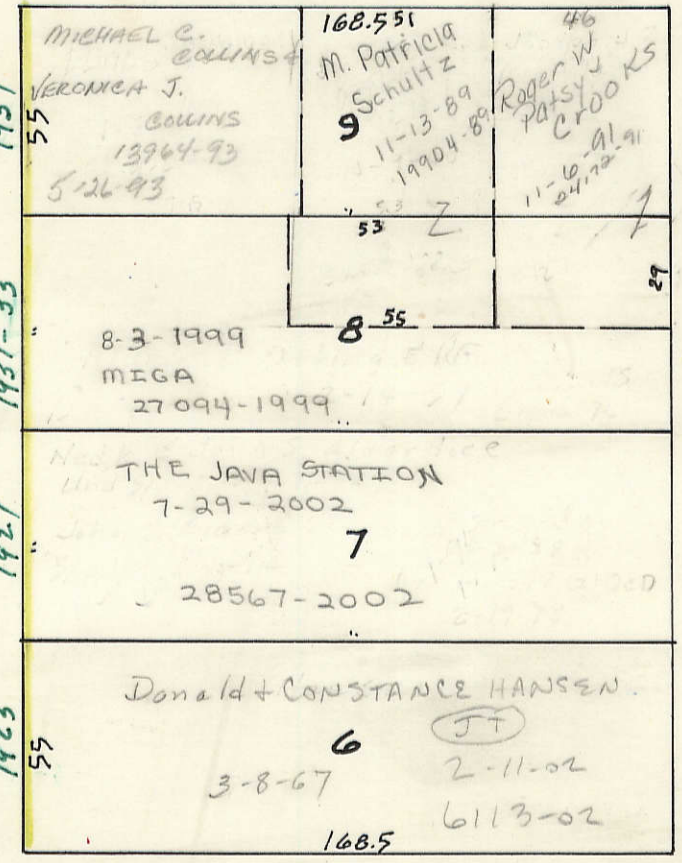 168.551
46
MICHAEL C.
COLLINS &
VERONICA J.
COLLINS
13964-93
5-26-93
55
M. Patricia
Schultz
9
11-13-89
19904-89
Roger W
Patsy J
CROOKS
11-6-91
53
Z
1
29
55
8
8-3-1999
MIGA
27094-1999
1931-33
THE JAVA STATION
7-29-2002
7
28567-2002
Donald & CONSTANCE HANSEN.
JT
6
3-8-67
2-11-02
6113-02
55
168.5